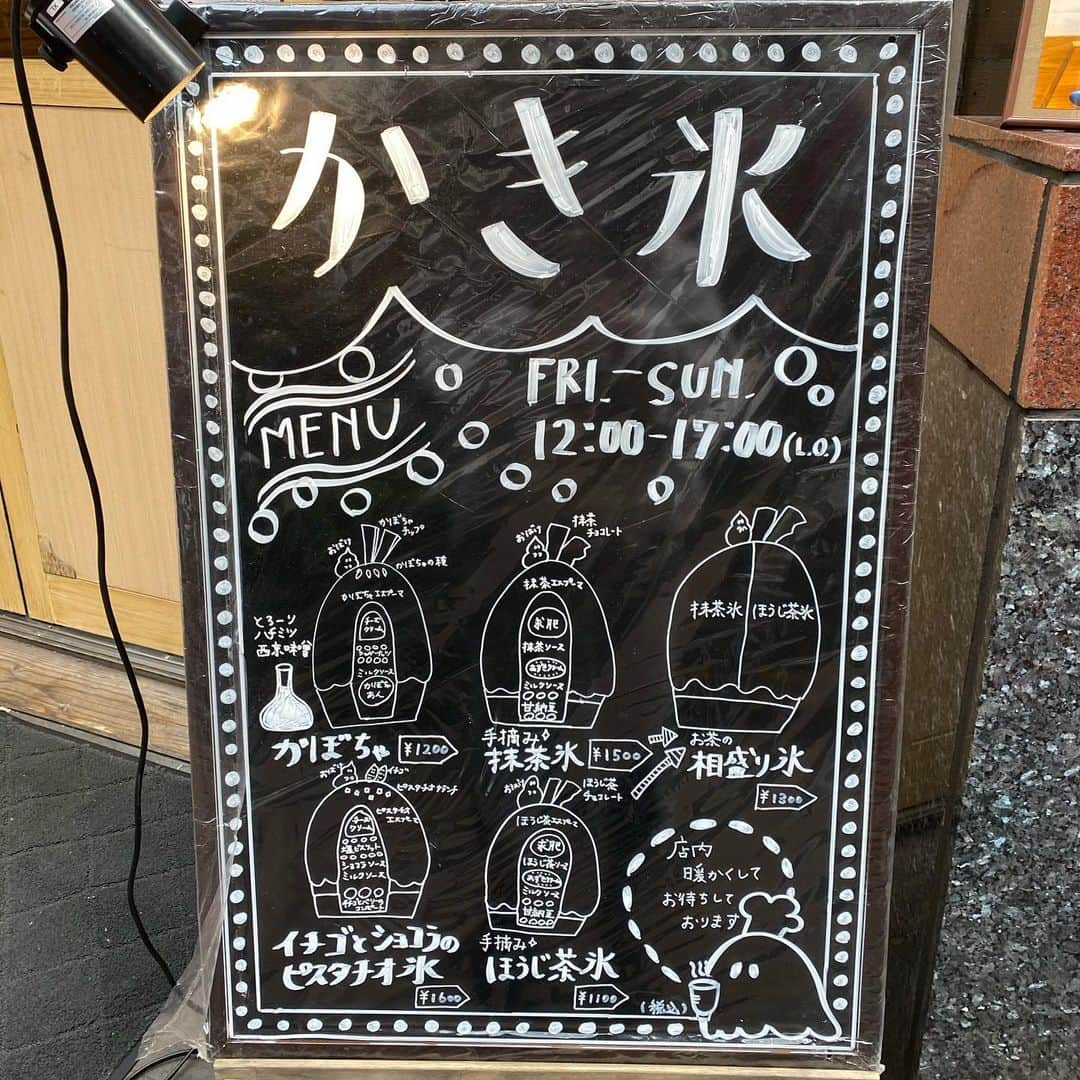 かき氷
MENU
FRI.-SUN.
12:00-17:00(L.O.)
おばけ
かぼちゃ
チップ
かぼちゃの種
かぼちゃエスプーマ
チーズ
クリーム
ミルクソース
かぼちゃ
あん
とろーり
ハチミツ
西京味噌
かぼちゃ ¥1200
おばけ
抹茶
チョコレート
抹茶エスプーマ
求肥
抹茶ソース
あずきクリーム
ミルクソース
甘納豆
手摘み
抹茶氷 ¥1500
抹茶氷 ほうじ茶氷
お茶の
相盛り氷
¥1300
おばけ
イチゴ
ピスタチオクランチ
ピスタチオ
エスプーマ
チーズ
クリーム
塩ビスケット
ショコラソース
ミルクソース
イチゴとベリーの
コンポート
イチゴとショコラの
ピスタチオ氷
¥1600
おばけ
ほうじ茶
チョコレート
ほうじ茶エスプーマ
求肥
ほうじ茶ソース
あずきクリーム
ミルクソース
甘納豆
手摘み
ほうじ茶氷
¥1100
店内
暖かくして
お待ちして
おります
(税込)